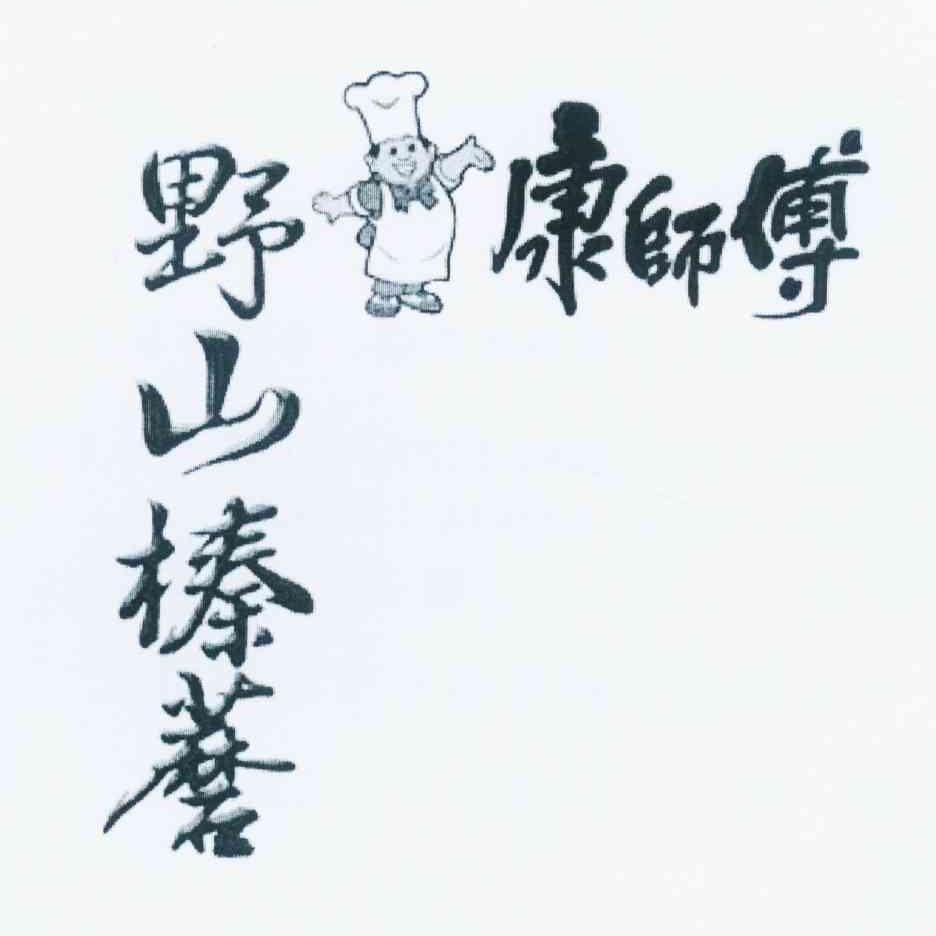 康師傅
野山榛蘑